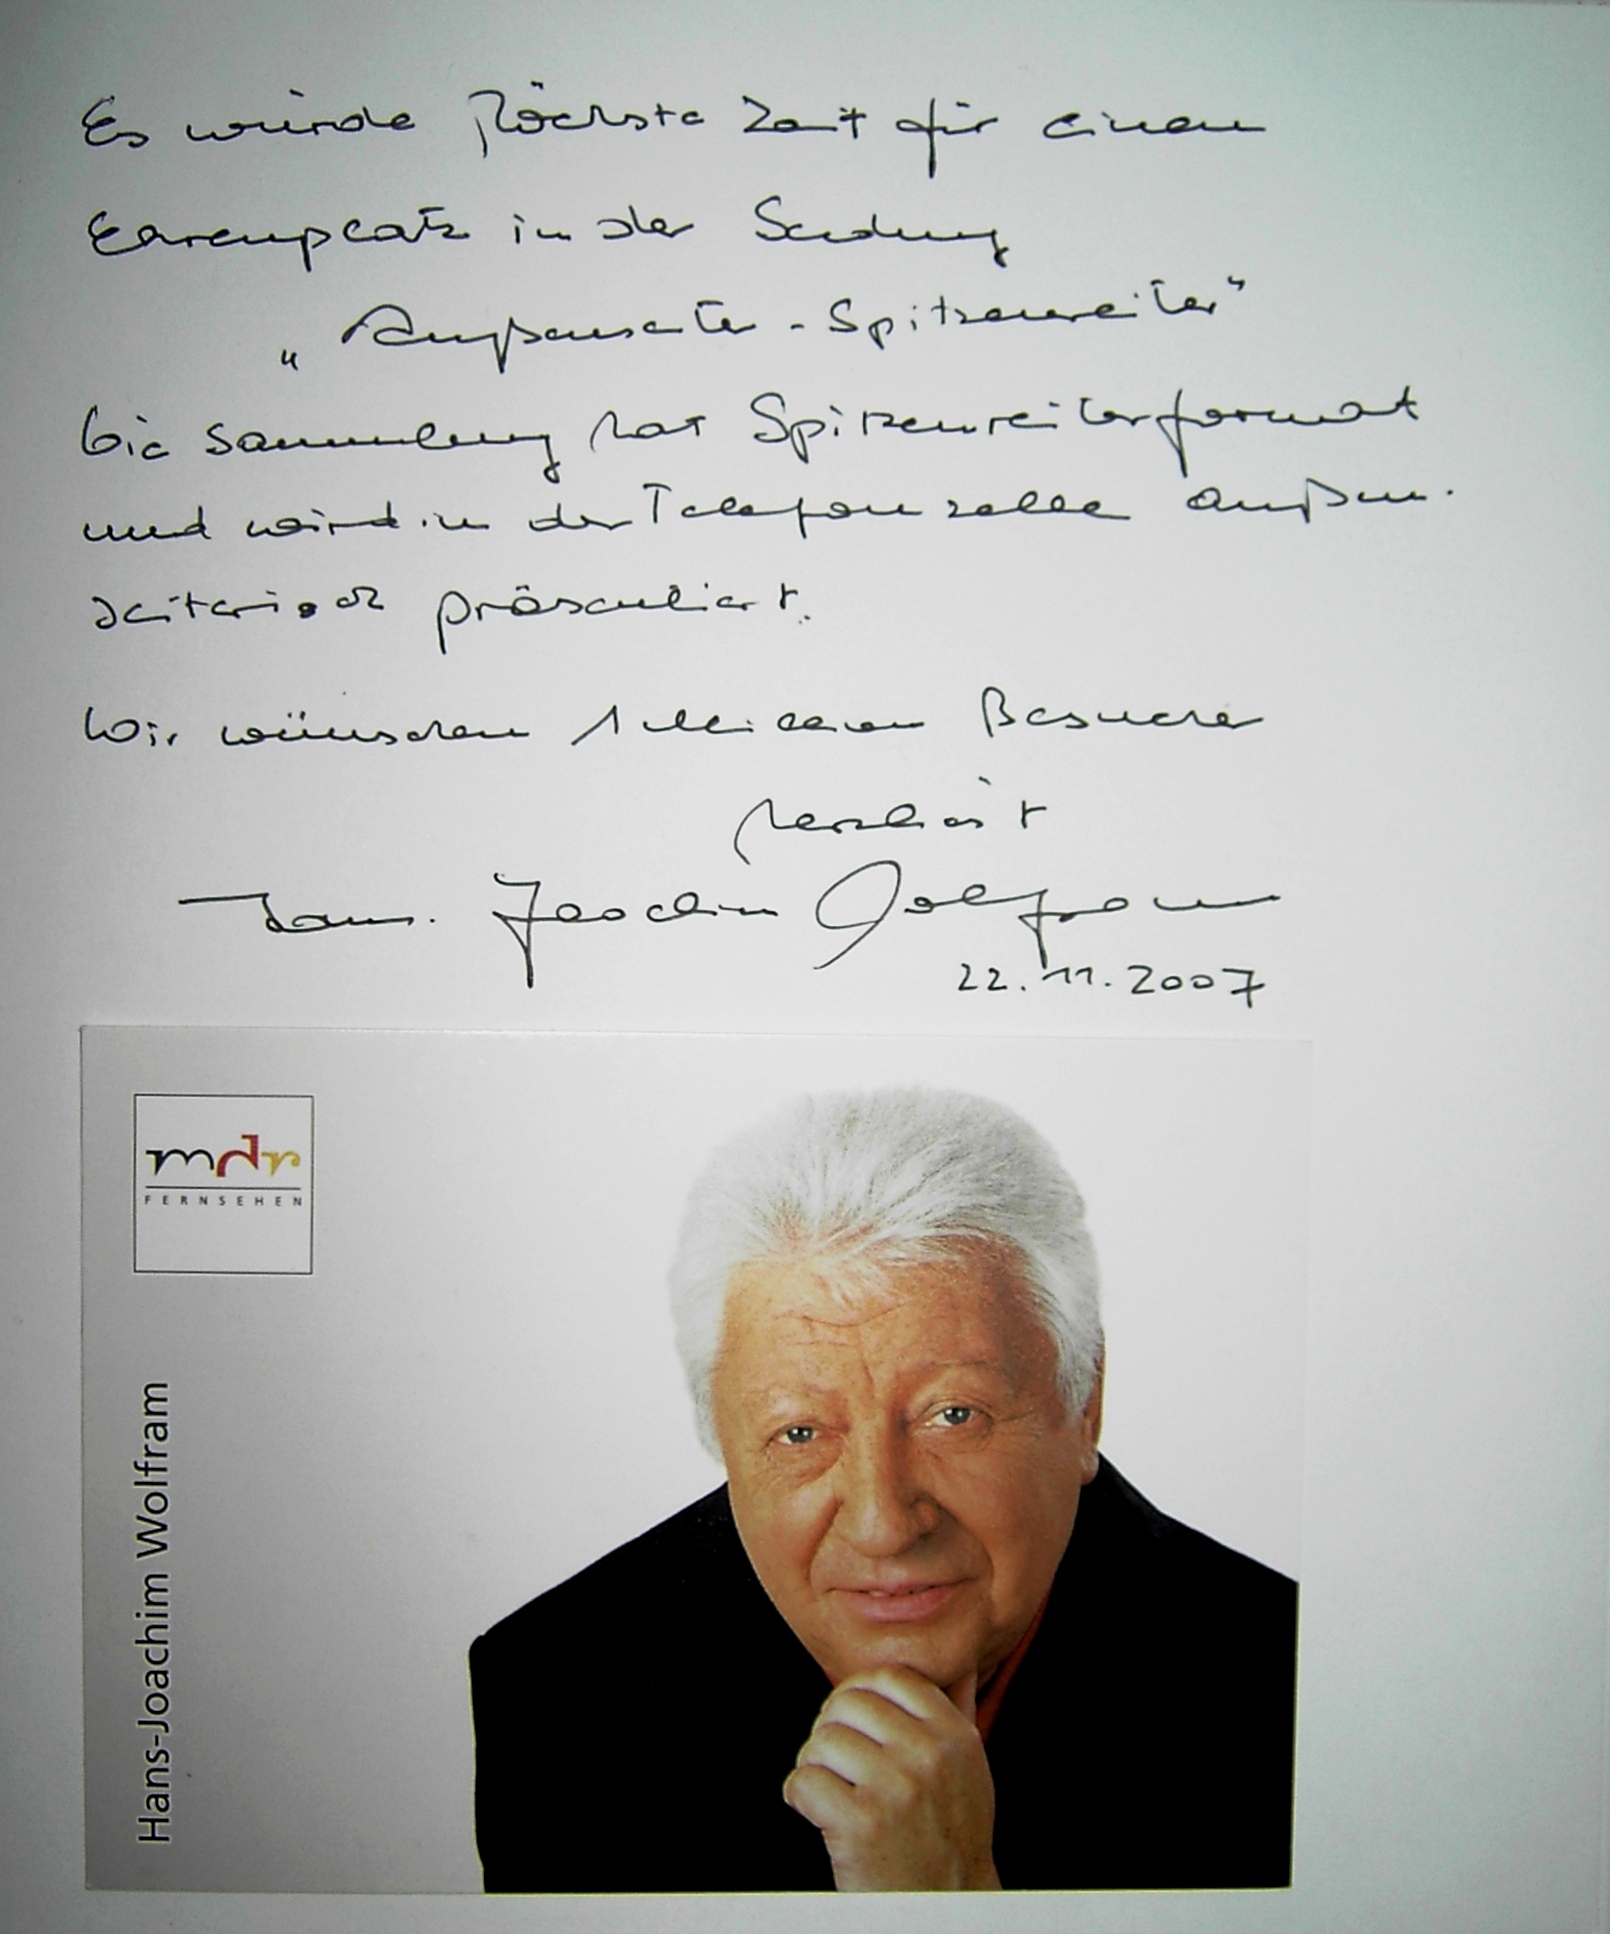 Es würde höchste Zeit für einen
Ehrenplatz in der Sendung
„Außenseiter - Spitzenreiter"
Die Sammlung hat Spitzenreiterformat
und wird in der Telefonzelle außen-
seiterisch präsentiert.
Wir wünschen 1 Million Besucher
herzlichst
Hans-Joachim Wolfram
22.11.2007
mdr
FERNSEHEN
Hans-Joachim Wolfram